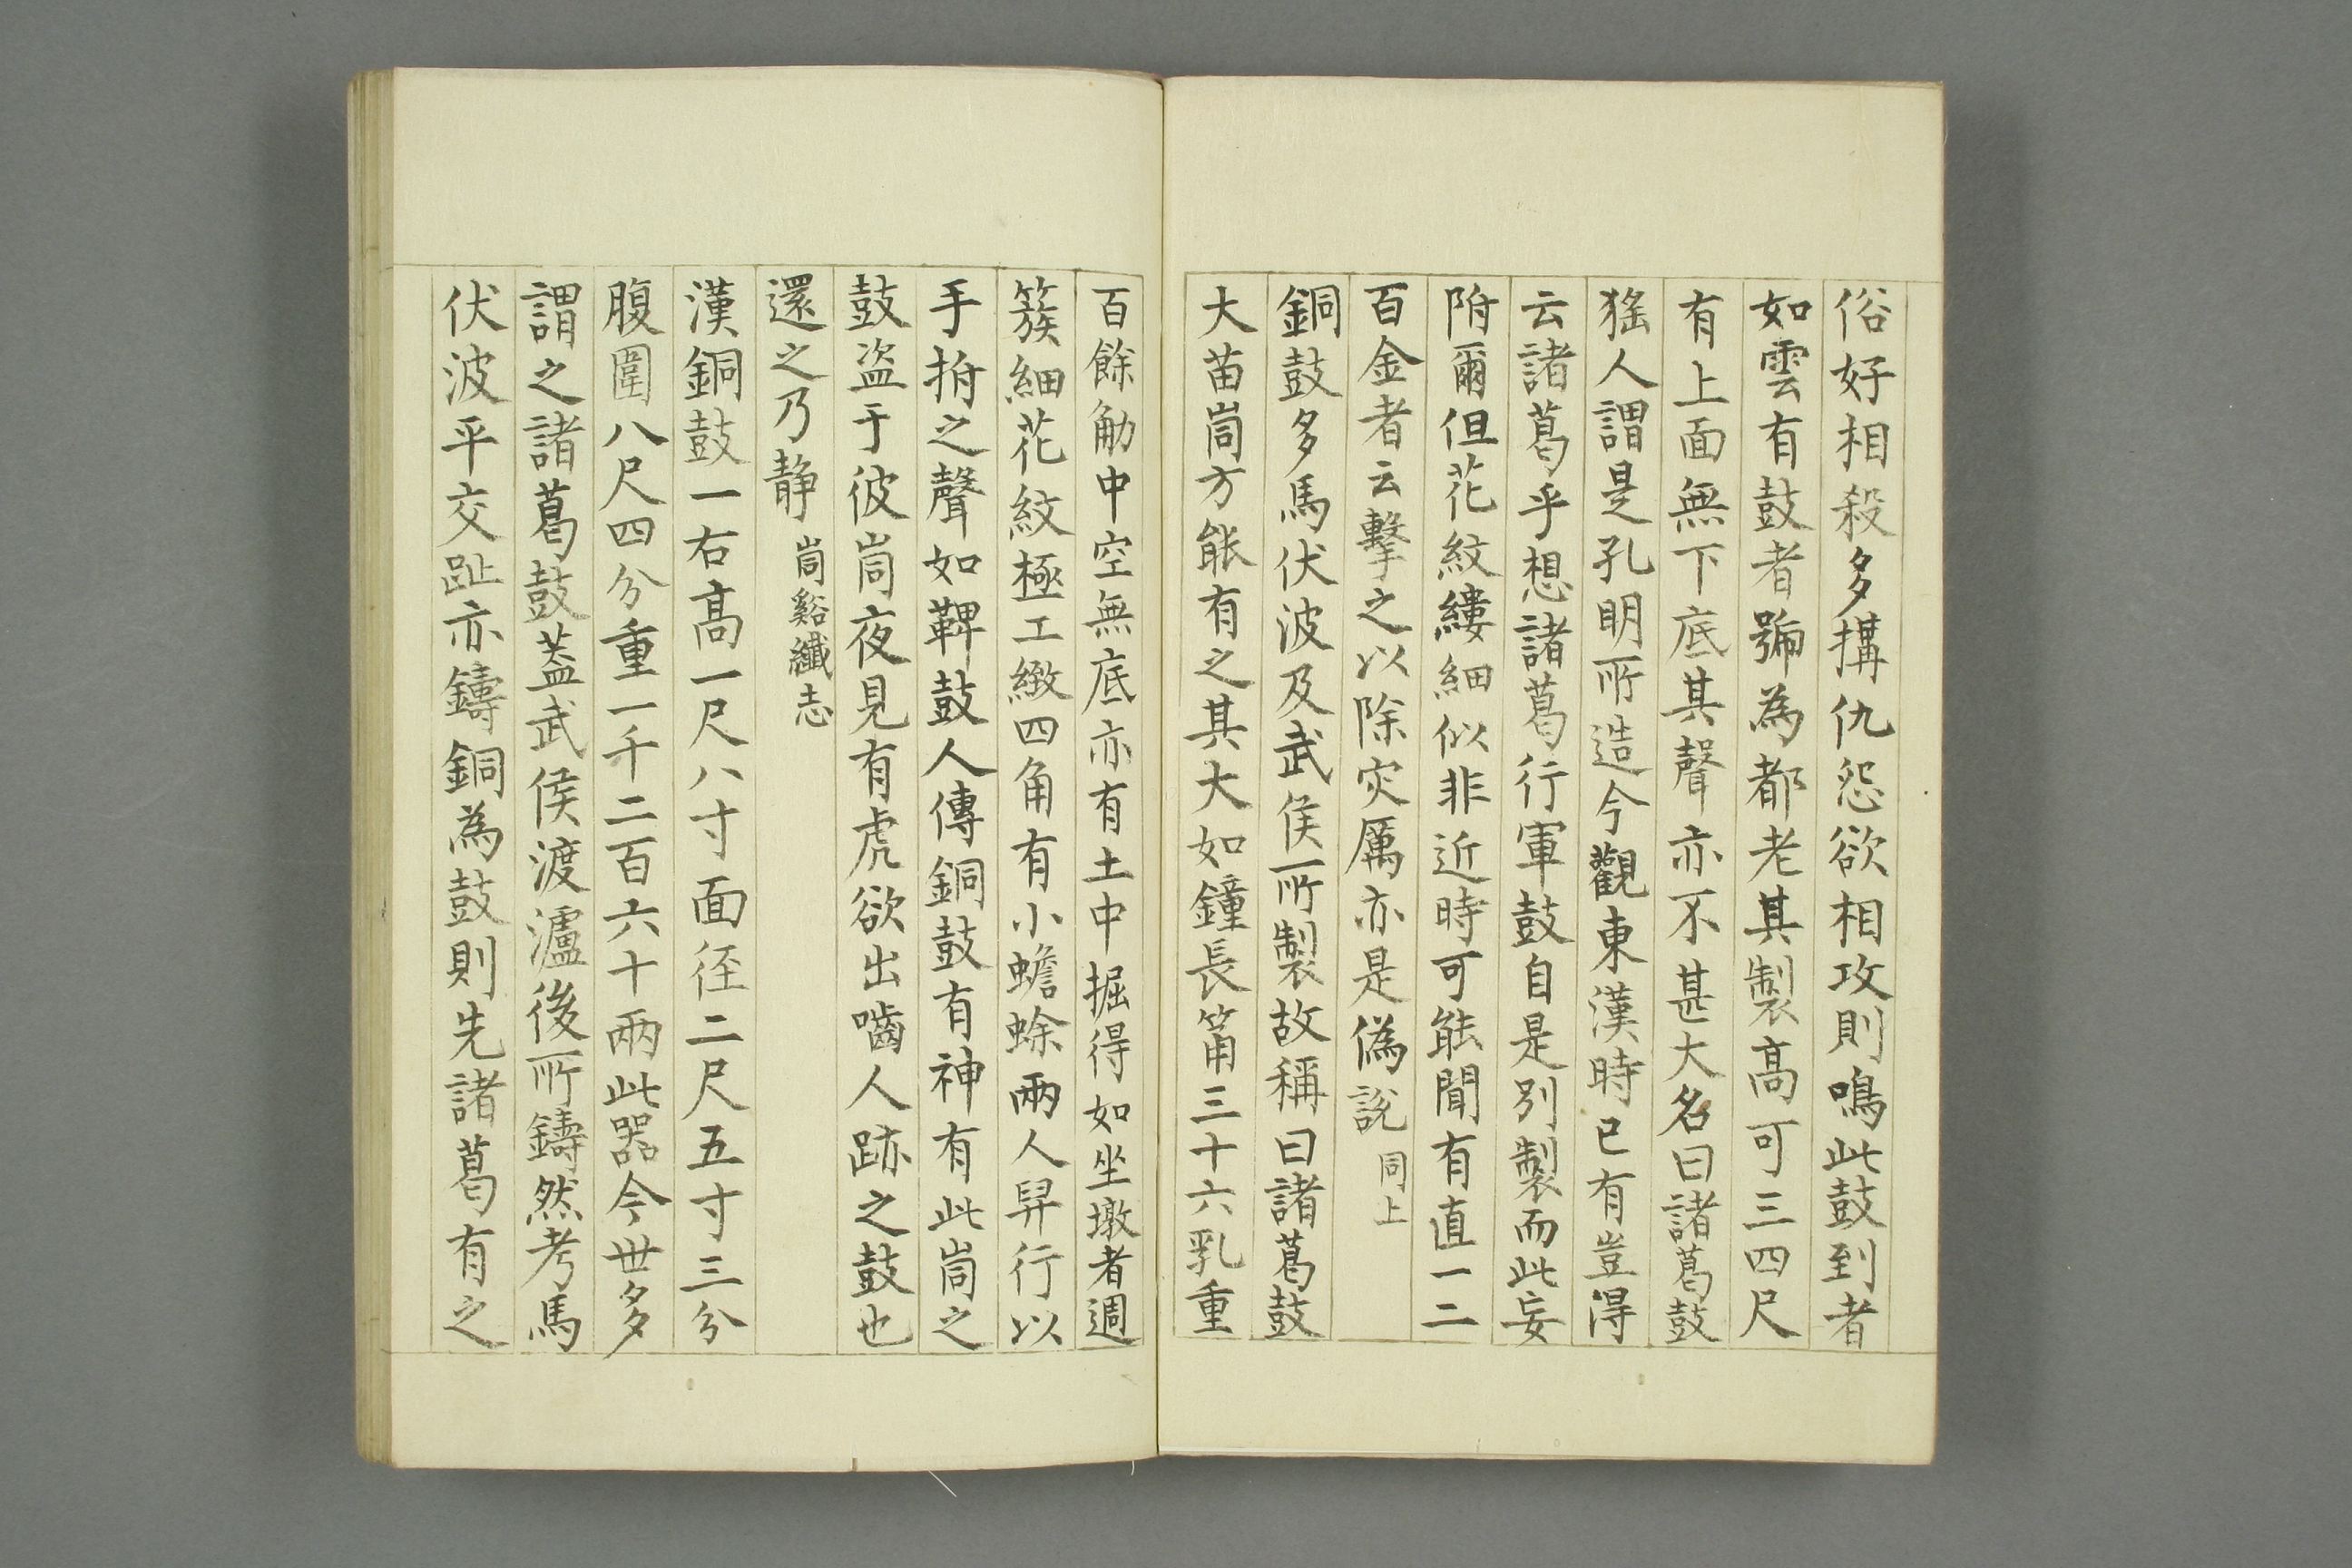 俗好相殺多搆仇怨欲相攻則鳴此鼓到者
如雲有鼓者號為都老其製高可三四尺
有上面無下底其聲亦不甚大名曰諸葛鼓
猺人謂是孔明所造今觀東漢時已有豈得
云諸葛乎想諸葛行軍鼓自是別製而此妄
附爾但花紋縷細似非近時可能聞有直一二
百金者云擊之以除灾厲亦是偽說 同上
銅鼓多馬伏波及武侯所製故稱曰諸葛鼓
大苗峝方能有之其大如鐘長筩三十六乳重
百餘觔中空無底亦有土中掘得如坐墩者週
簇細花紋極工緻四角有小蟾蜍兩人舁行以
手拊之聲如鞞鼓人傳銅鼓有神有此峝之
鼓盜于彼峝夜見有虎欲出嚙人跡之鼓也
還之乃静 峝谿纖志
漢銅鼓一右高一尺八寸面徑二尺五寸三分
腹圍八尺四分重一千二百六十兩此器今世多
謂之諸葛鼓蓋武侯渡瀘後所鑄然考馬
伏波平交趾亦鑄銅為鼓則先諸葛有之